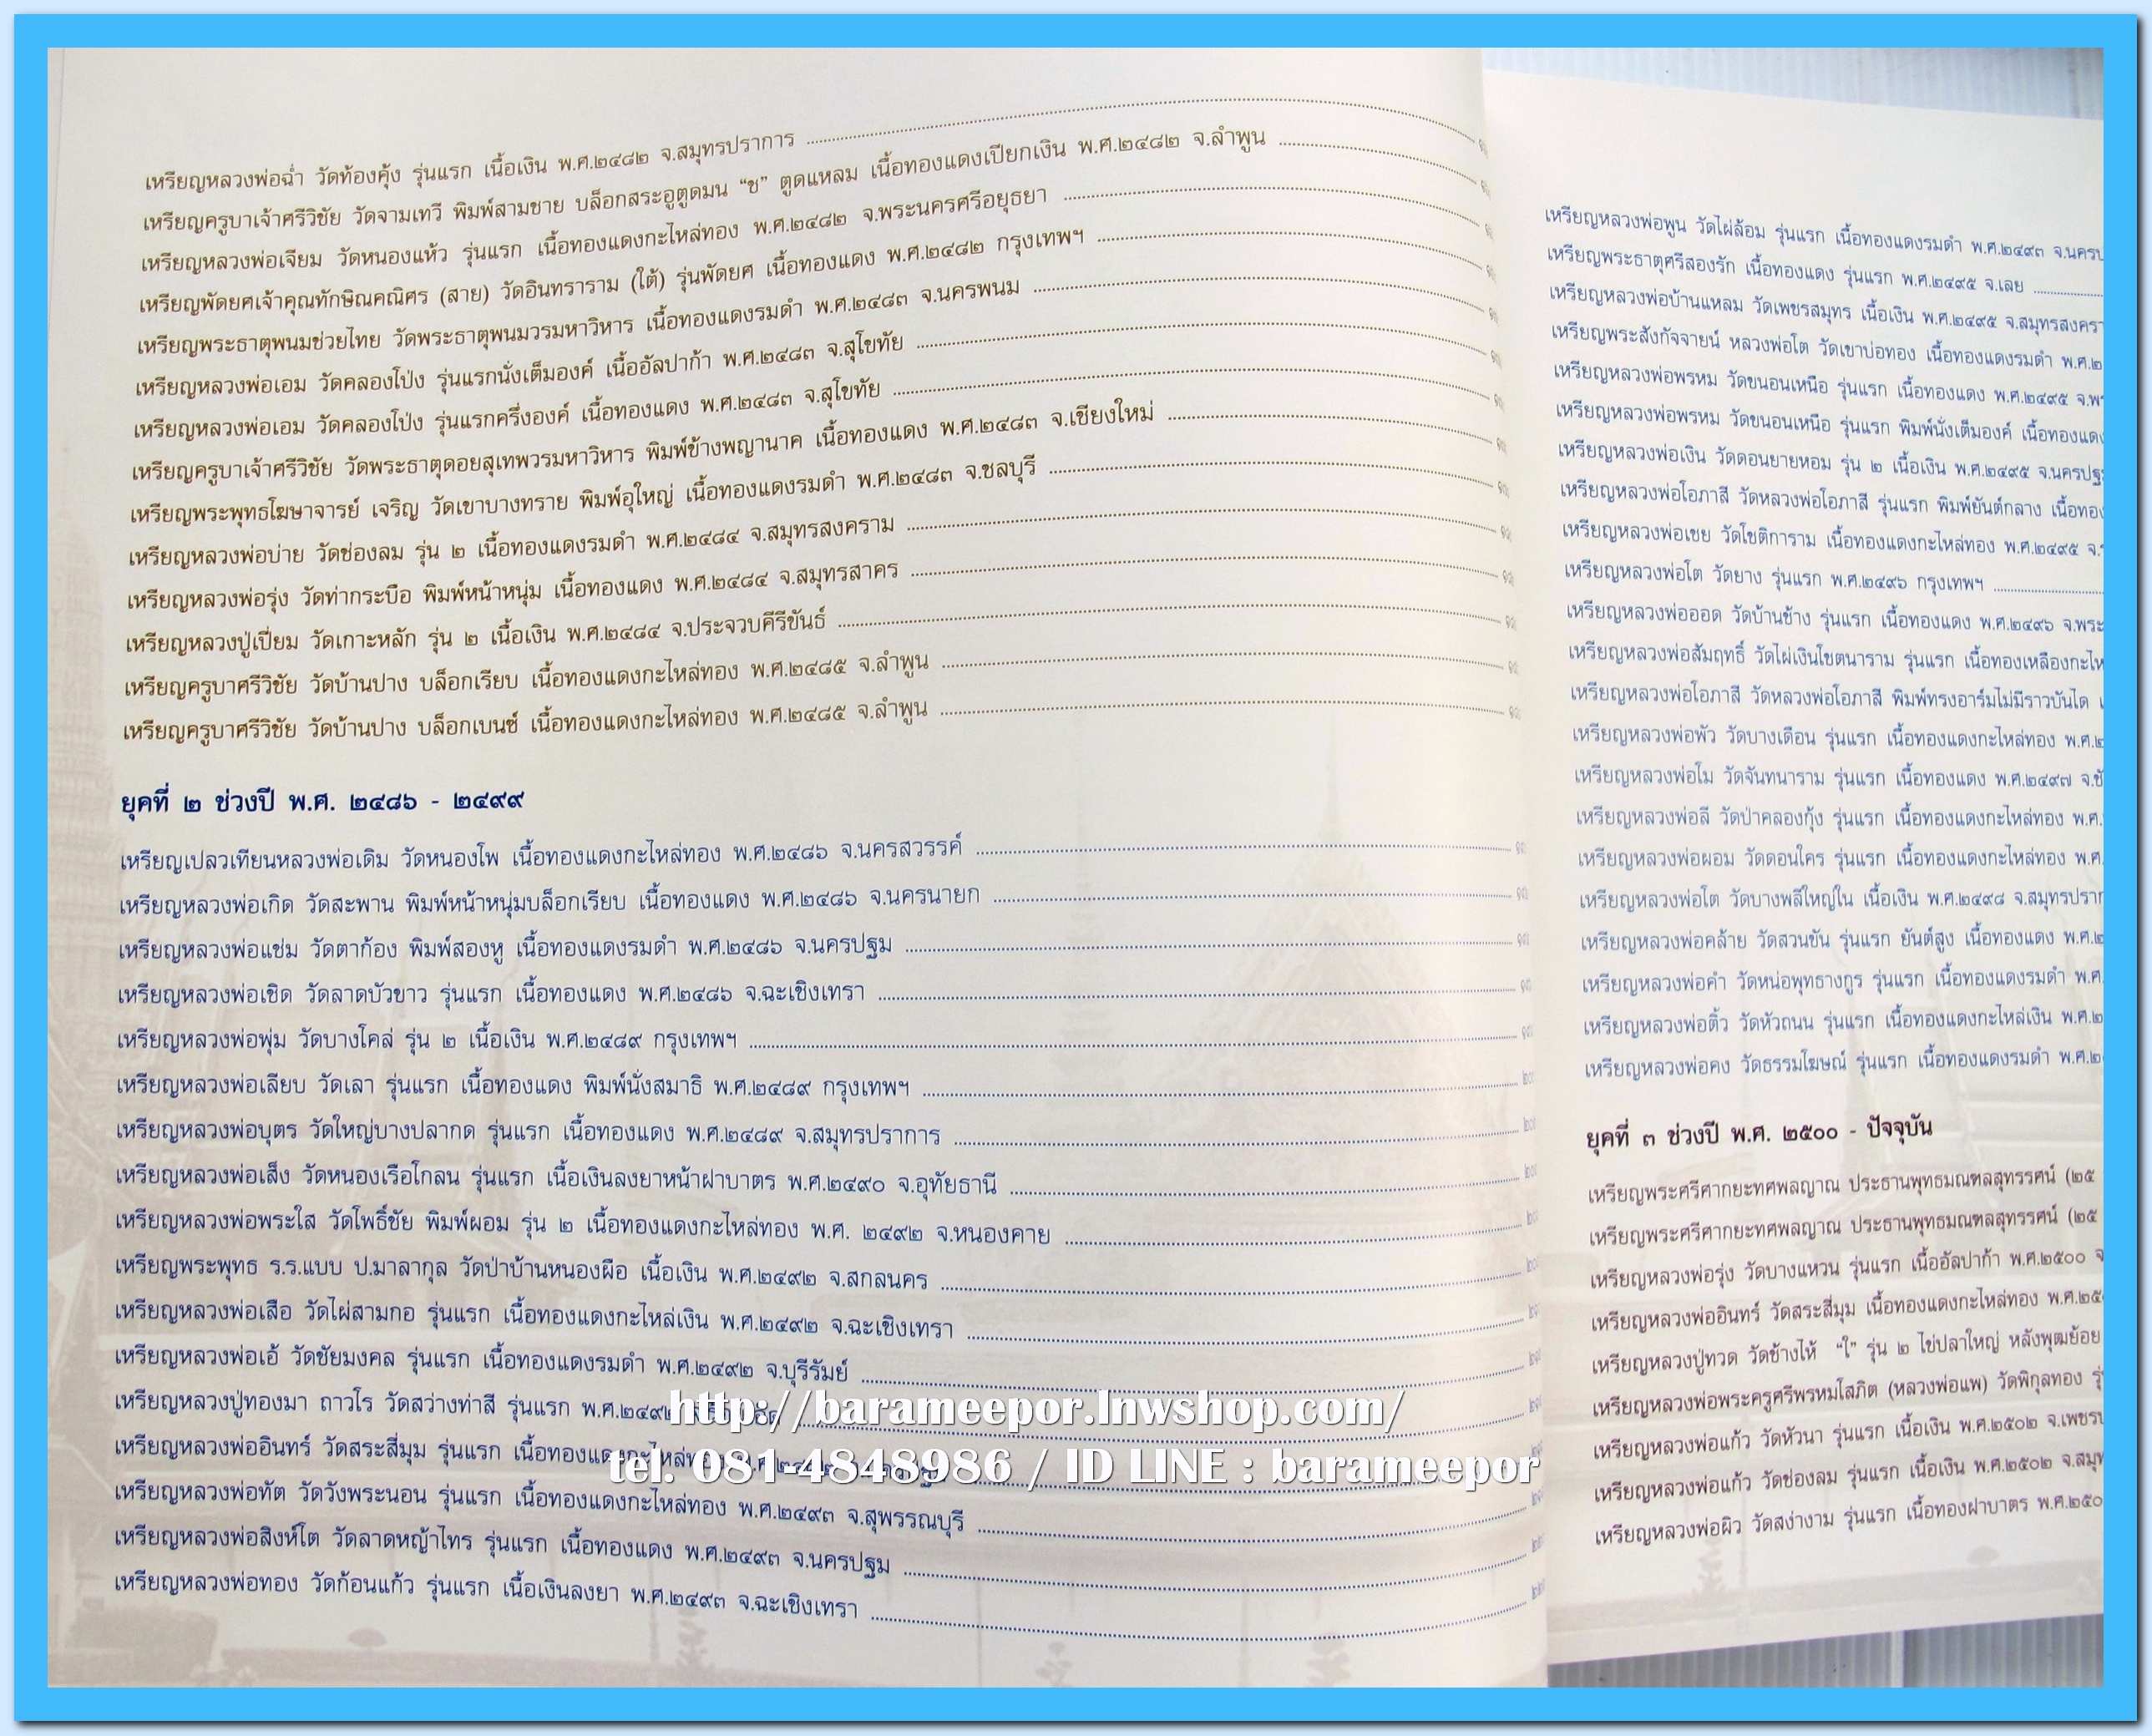 เหรียญหลวงพ่อฉ่ำ วัดท้องคุ้ง รุ่นแรก เนื้อเงิน พ.ศ.๒๔๘๒ จ.สมุทรปราการ
เหรียญครูบาเจ้าศรีวิชัย วัดจามเทวี พิมพ์สามชาย บล็อกสระอูตูดมน “ช” ตูดแหลม เนื้อทองแดงเปียกเงิน พ.ศ.๒๔๘๒ จ.ลำพูน
เหรียญหลวงพ่อเจียม วัดหนองแห้ว รุ่นแรก เนื้อทองแดงกะไหล่ทอง พ.ศ.๒๔๘๒ จ.พระนครศรีอยุธยา
เหรียญพัดยศเจ้าคุณทักษิณคณิศร (สาย) วัดอินทราราม (ใต้) รุ่นพัดยศ เนื้อทองแดง พ.ศ.๒๔๘๒ กรุงเทพฯ
เหรียญพระธาตุพนมช่วยไทย วัดพระธาตุพนมวรมหาวิหาร เนื้อทองแดงรมดำ พ.ศ.๒๔๘๓ จ.นครพนม
เหรียญหลวงพ่อเอม วัดคลองโป่ง รุ่นแรกนั่งเต็มองค์ เนื้ออัลปาก้า พ.ศ.๒๔๘๓ จ.สุโขทัย
เหรียญหลวงพ่อเอม วัดคลองโป่ง รุ่นแรกครึ่งองค์ เนื้อทองแดง พ.ศ.๒๔๘๓ จ.สุโขทัย
เหรียญครูบาเจ้าศรีวิชัย วัดพระธาตุดอยสุเทพวรมหาวิหาร พิมพ์ข้างพญานาค เนื้อทองแดง พ.ศ.๒๔๘๓ จ.เชียงใหม่
เหรียญพระพุทธโฆษาจารย์ เจริญ วัดเขาบางทราย พิมพ์อุใหญ่ เนื้อทองแดงรมดำ พ.ศ.๒๔๘๓ จ.ชลบุรี
เหรียญหลวงพ่อบ่าย วัดช่องลม รุ่น ๒ เนื้อทองแดงรมดำ พ.ศ.๒๔๘๔ จ.สมุทรสงคราม
เหรียญหลวงพ่อรุ่ง วัดท่ากระบือ พิมพ์หน้าหนุ่ม เนื้อทองแดง พ.ศ.๒๔๘๔ จ.สมุทรสาคร
เหรียญหลวงปู่เปี่ยม วัดเกาะหลัก รุ่น ๒ เนื้อเงิน พ.ศ.๒๔๘๔ จ.ประจวบคีรีขันธ์
เหรียญครูบาศรีวิชัย วัดบ้านปาง บล็อกเรียบ เนื้อทองแดงกะไหล่ทอง พ.ศ.๒๔๘๕ จ.ลำพูน
เหรียญครูบาศรีวิชัย วัดบ้านปาง บล็อกเบนซ์ เนื้อทองแดงกะไหล่ทอง พ.ศ.๒๔๘๕ จ.ลำพูน
ยุคที่ ๒ ช่วงปี พ.ศ. ๒๔๘๖ - ๒๔๙๙
เหรียญเปลวเทียนหลวงพ่อเดิม วัดหนองโพ เนื้อทองแดงกะไหล่ทอง พ.ศ.๒๔๘๖ จ.นครสวรรค์
เหรียญหลวงพ่อเกิด วัดสะพาน พิมพ์หน้าหนุ่มบล็อกเรียบ เนื้อทองแดง พ.ศ.๒๔๘๖ จ.นครนายก
เหรียญหลวงพ่อแช่ม วัดตาก้อง พิมพ์สองหู เนื้อทองแดงรมดำ พ.ศ.๒๔๘๖ จ.นครปฐม
เหรียญหลวงพ่อเชิด วัดลาดบัวขาว รุ่นแรก เนื้อทองแดง พ.ศ.๒๔๘๖ จ.ฉะเชิงเทรา
เหรียญหลวงพ่อพุ่ม วัดบางโคล่ รุ่น ๒ เนื้อเงิน พ.ศ.๒๔๘๙ กรุงเทพฯ
เหรียญหลวงพ่อเลียบ วัดเลา รุ่นแรก เนื้อทองแดง พิมพ์นั่งสมาธิ พ.ศ.๒๔๘๙ กรุงเทพฯ
เหรียญหลวงพ่อบุตร วัดใหญ่บางปลากด รุ่นแรก เนื้อทองแดง พ.ศ.๒๔๘๙ จ.สมุทรปราการ
เหรียญหลวงพ่อเส็ง วัดหนองเรือโกลน รุ่นแรก เนื้อเงินลงยาหน้าฝาบาตร พ.ศ.๒๔๙๐ จ.อุทัยธานี
เหรียญหลวงพ่อพระใส วัดโพธิ์ชัย พิมพ์ผอม รุ่น ๒ เนื้อทองแดงกะไหล่ทอง พ.ศ. ๒๔๙๒ จ.หนองคาย
เหรียญพระพุทธ ร.ร.แบบ ป.มาลากุล วัดป่าบ้านหนองผือ เนื้อเงิน พ.ศ.๒๔๙๒ จ.สกลนคร
เหรียญหลวงพ่อเสือ วัดไผ่สามกอ รุ่นแรก เนื้อทองแดงกะไหล่เงิน พ.ศ.๒๔๙๒ จ.ฉะเชิงเทรา
เหรียญหลวงพ่อเอ้ วัดชัยมงคล รุ่นแรก เนื้อทองแดงรมดำ พ.ศ.๒๔๙๒ จ.บุรีรัมย์
เหรียญหลวงปู่ทองมา ถาวโร วัดสว่างท่าสี รุ่นแรก พ.ศ.๒๔๙๒
เหรียญหลวงพ่ออินทร์ วัดสระสี่มุม รุ่นแรก เนื้อทองแดงกะไหล่ทอง
เหรียญหลวงพ่อทัต วัดวังพระนอน รุ่นแรก เนื้อทองแดงกะไหล่ทอง พ.ศ.๒๔๙๓ จ.สุพรรณบุรี
เหรียญหลวงพ่อสิงห์โต วัดลาดหญ้าไทร รุ่นแรก เนื้อทองแดง พ.ศ.๒๔๙๓ จ.นครปฐม
เหรียญหลวงพ่อทอง วัดก้อนแก้ว รุ่นแรก เนื้อเงินลงยา พ.ศ.๒๔๙๓ จ.ฉะเชิงเทรา
http://barameepor.lnwshop.com/
tel. 081-4848986 / ID LINE : barameepor
เหรียญหลวงพ่อพูน วัดไผ่ล้อม รุ่นแรก เนื้อทองแดงรมดำ พ.ศ.๒๔๙๓
เหรียญพระธาตุศรีสองรัก เนื้อทองแดง รุ่นแรก พ.ศ.๒๔๙๕ จ.เลย
เหรียญหลวงพ่อบ้านแหลม วัดเพชรสมุทร เนื้อเงิน พ.ศ.๒๔๙๕ จ.สมุทรสงครา
เหรียญพระสังกัจจายน์ หลวงพ่อโต วัดเขาบ่อทอง เนื้อทองแดงรมดำ พ.ศ.๒
เหรียญหลวงพ่อพรหม วัดขนอนเหนือ รุ่นแรก เนื้อทองแดง พ.ศ.๒๔๙๕
เหรียญหลวงพ่อพรหม วัดขนอนเหนือ รุ่นแรก พิมพ์นั่งเต็มองค์ เนื้อทองแดง
เหรียญหลวงพ่อเงิน วัดดอนยายหอม รุ่น ๒ เนื้อเงิน พ.ศ.๒๔๙๕ จ.นครปฐม
เหรียญหลวงพ่อโอภาสี วัดหลวงพ่อโอภาสี รุ่นแรก พิมพ์ยันต์กลาง เนื้อทอง
เหรียญหลวงพ่อเชย วัดโชติการาม เนื้อทองแดงกะไหล่ทอง พ.ศ.๒๔๙๕
เหรียญหลวงพ่อโต วัดยาง รุ่นแรก พ.ศ.๒๔๙๖ กรุงเทพฯ
เหรียญหลวงพ่อออด วัดบ้านช้าง รุ่นแรก เนื้อทองแดง พ.ศ.๒๔๙๖ จ.พระ
เหรียญหลวงพ่อสัมฤทธิ์ วัดไผ่เงินโชตนาราม รุ่นแรก เนื้อทองเหลืองกะไห
เหรียญหลวงพ่อโอภาสี วัดหลวงพ่อโอภาสี พิมพ์ทรงอาร์มไม่มีราวบันได
เหรียญหลวงพ่อพัว วัดบางเดือน รุ่นแรก เนื้อทองแดงกะไหล่ทอง พ.ศ.๒
เหรียญหลวงพ่อโม วัดจันทนาราม รุ่นแรก เนื้อทองแดง พ.ศ.๒๔๙๗ จ.ชั
เหรียญหลวงพ่อลี วัดป่าคลองกุ้ง รุ่นแรก เนื้อทองแดงกะไหล่ทอง พ.ศ.
เหรียญหลวงพ่อผอม วัดดอนใคร รุ่นแรก เนื้อทองแดงกะไหล่ทอง พ.ศ
เหรียญหลวงพ่อโต วัดบางพลีใหญ่ใน เนื้อเงิน พ.ศ.๒๔๙๘ จ.สมุทรปรา
เหรียญหลวงพ่อคล้าย วัดสวนขัน รุ่นแรก ยันต์สูง เนื้อทองแดง พ.ศ.๒
เหรียญหลวงพ่อคำ วัดหน่อพุทธางกูร รุ่นแรก เนื้อทองแดงรมดำ พ.ศ.
เหรียญหลวงพ่อติ้ว วัดหัวถนน รุ่นแรก เนื้อทองแดงกะไหล่เงิน พ.ศ.๒
เหรียญหลวงพ่อคง วัดธรรมโฆษณ์ รุ่นแรก เนื้อทองแดงรมดำ พ.ศ.๒
ยุคที่ ๓ ช่วงปี พ.ศ. ๒๕๐๐ - ปัจจุบัน
เหรียญพระศรีศากยะทศพลญาณ ประธานพุทธมณฑลสุทรรศน์ (๒๕
เหรียญพระศรีศากยะทศพลญาณ ประธานพุทธมณฑลสุทรรศน์ (๒๕
เหรียญหลวงพ่อรุ่ง วัดบางแหวน รุ่นแรก เนื้ออัลปาก้า พ.ศ.๒๕๐๐ จ
เหรียญหลวงพ่ออินทร์ วัดสระสี่มุม เนื้อทองแดงกะไหล่ทอง พ.ศ.๒๕
เหรียญหลวงปู่ทวด วัดช้างไห้ “ใ” รุ่น ๒ ไข่ปลาใหญ่ หลังพุฒย้อย
เหรียญหลวงพ่อพระครูศรีพรหมโสภิต (หลวงพ่อแพ) วัดพิกุลทอง รุ่
เหรียญหลวงพ่อแก้ว วัดหัวนา รุ่นแรก เนื้อเงิน พ.ศ.๒๕๐๒ จ.เพชรบ
เหรียญหลวงพ่อแก้ว วัดช่องลม รุ่นแรก เนื้อเงิน พ.ศ.๒๕๐๒ จ.สมุท
เหรียญหลวงพ่อผิว วัดสง่างาม รุ่นแรก เนื้อทองฝาบาตร พ.ศ.๒๕๐